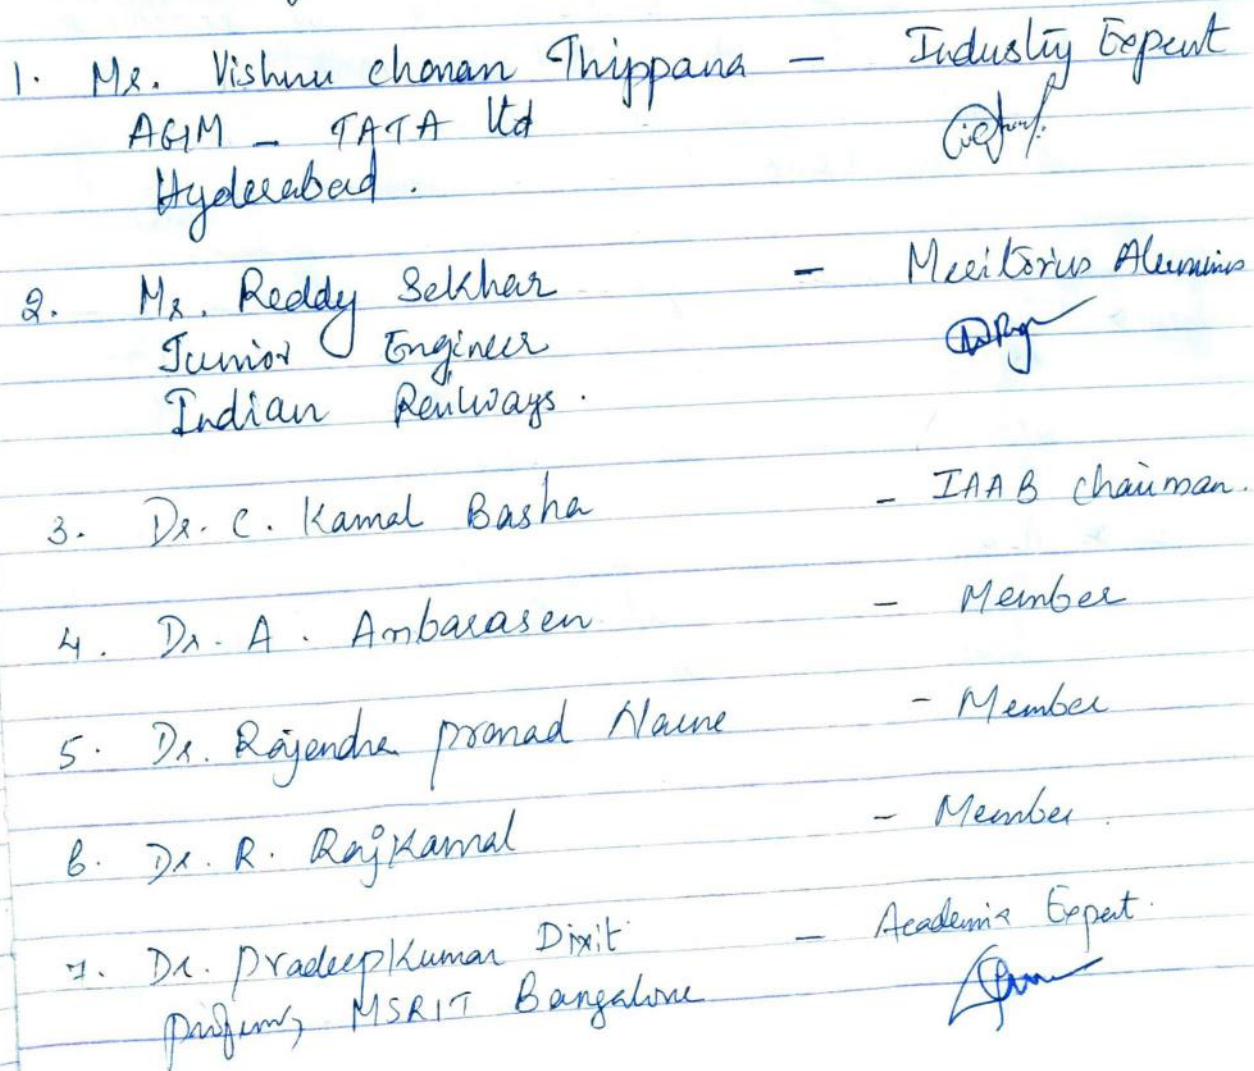 1. Mr. Vishnu charan Thippana - Industry Expert
AGM - TATA ltd
Hyderabad.
2. Mr. Reddy Sekhar - Meritorius Alumnus
Junior Engineer
Indian Railways.
3. Dr. C. Kamal Basha - IAAB chairman.
4. Dr. A. Anbarasan - Member
5. Dr. Rajendra prasad - Member
6. Dr. R. Rajkamal - Member.
7. Dr. Pradeepkumar Dixit - Academic Expert.
professor, MSRIT Bangalore